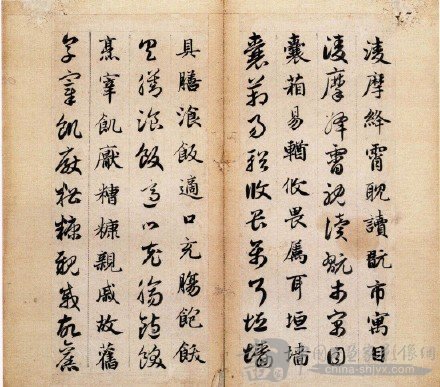 凌摩絳霄耽讀翫市寓目
凌摩絳霄耽讀翫市寓目
囊箱易輶攸畏屬耳垣墻
囊箱易輶攸畏屬耳垣墻
具膳湌飯適口充腸飽飫
具膳湌飯適口充腸飽飫
烹宰飢厭糟糠親戚故舊
烹宰飢厭糟糠親戚故舊